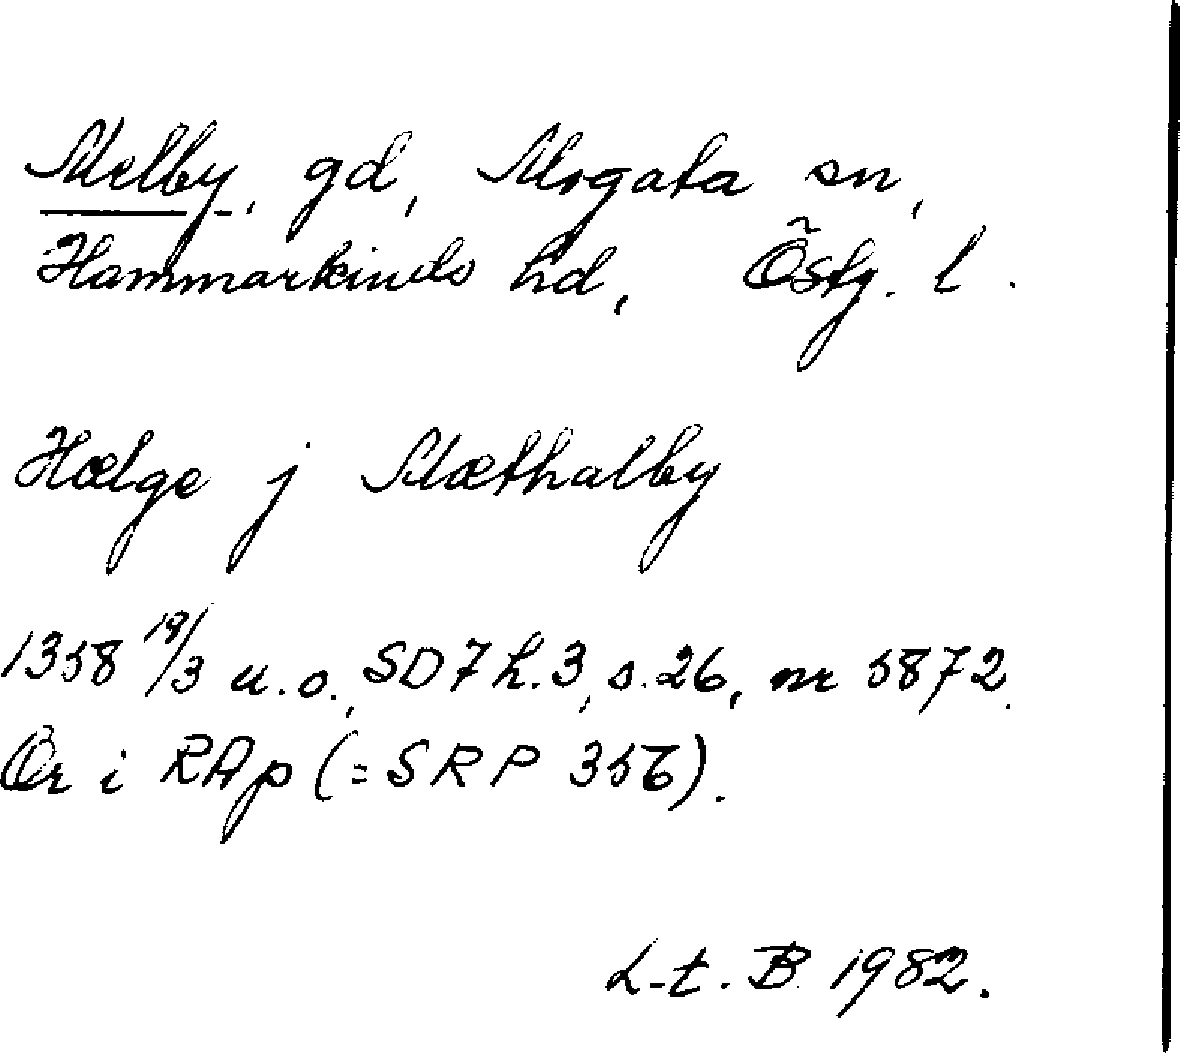 Melby, gd, Mogata sn,
Hammarkinds hd, Östg. l.
Hælge j Mæthalby
1358 19/3 u.o., SD 7 h. 3, s. 26, nr 5872.
Or i RAp (= SRP 356).
L-t. B 1982.